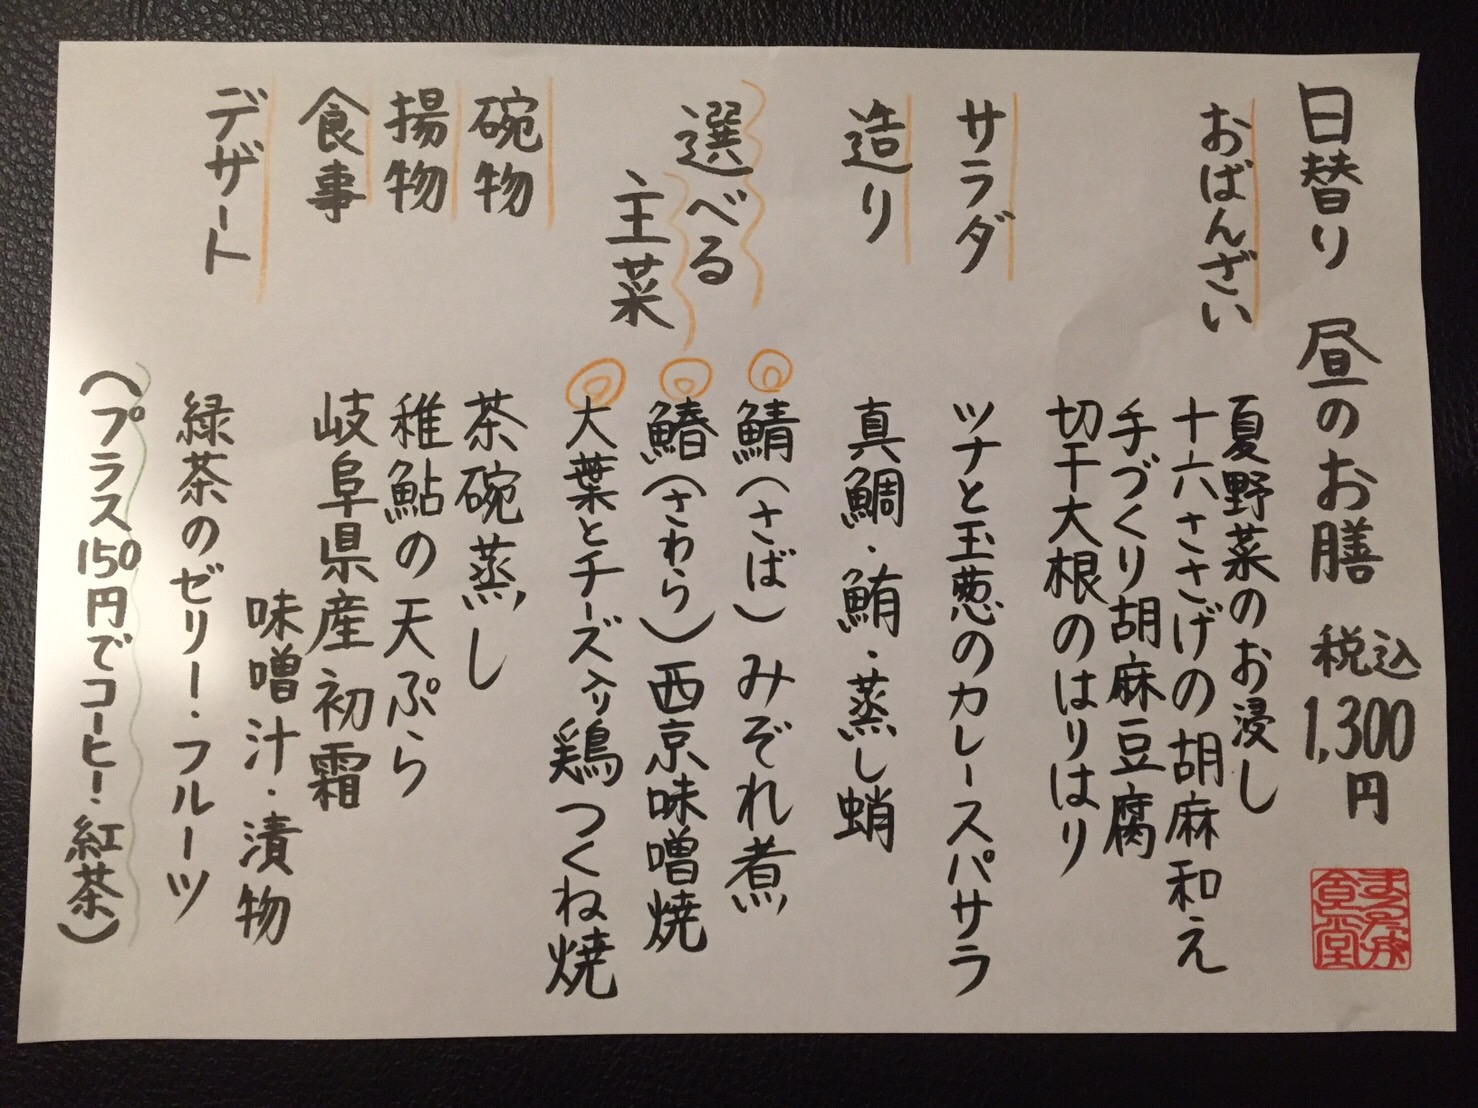 日替り 昼のお膳 税込1,300円
おばんざい
夏野菜のお浸し
十六ささげの胡麻和え
手づくり胡麻豆腐
切干大根のはりはり
サラダ ツナと玉葱のカレースパサラ
造り 真鯛・鮪・蒸し蛸
選べる
主菜
鯖(さば)みぞれ煮
鰆(さわら)西京味噌焼
大葉とチーズ入り鶏つくね焼
碗物 茶碗蒸し
揚物 稚鮎の天ぷら
食事 岐阜県産初霜
味噌汁・漬物
デザート 緑茶のゼリー・フルーツ
(プラス150円でコーヒー・紅茶)
食堂